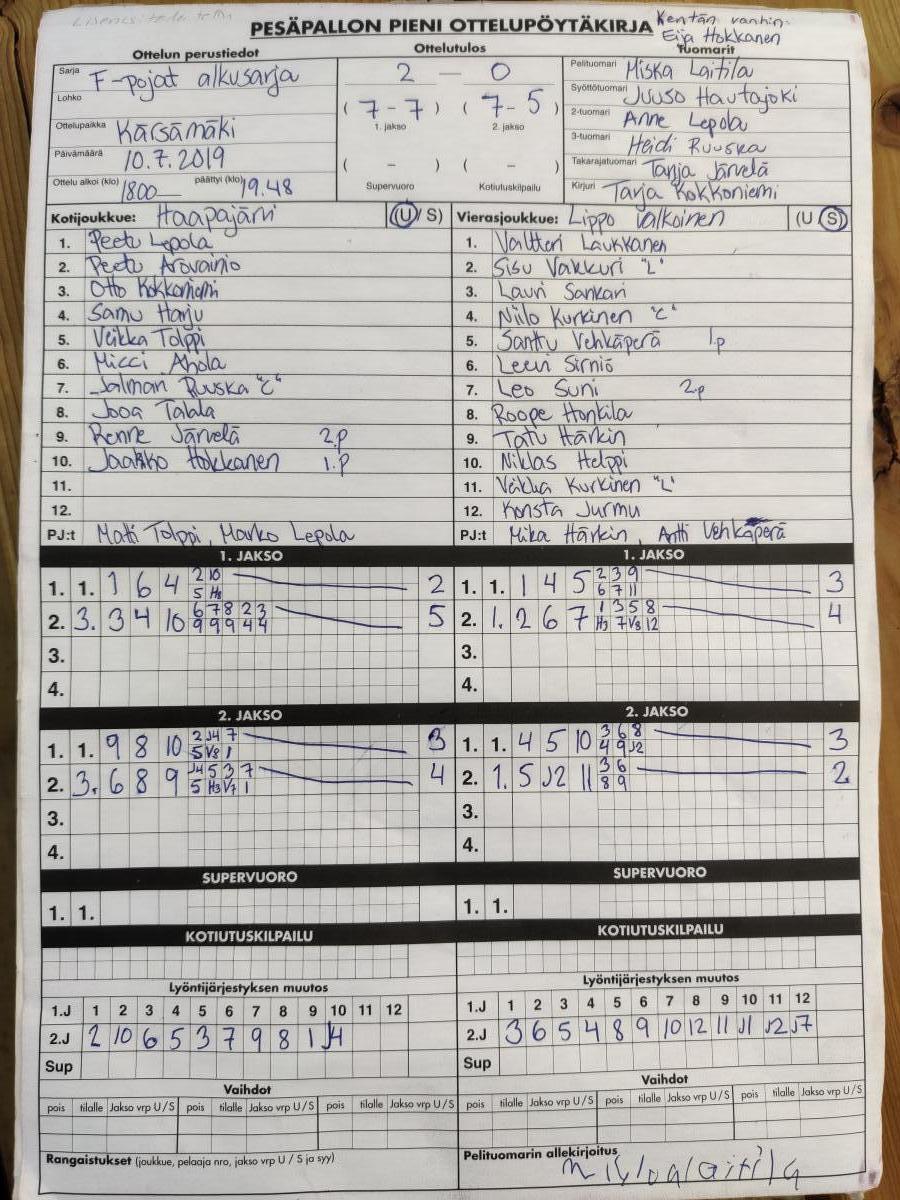 PESÄPALLON PIENI OTTELUPÖYTÄKIRJA
Kentän vanhin:
Eija Hokkanen
Ottelun perustiedot
Sarja F-pojat alkusarja
Lohko
Ottelupaikka Kärsämäki
Päivämäärä 10.7.2019
Ottelu alkoi (klo) 1800 päättyi (klo) 19.48
Ottelutulos
2 — 0
(7-7) (7-5)
1. jakso 2. jakso
( - ) ( - )
Supervuoro Kotiutuskilpailu
Tuomarit
Pelituomari Miska Laitila
Syöttötuomari Juuso Hautajoki
2-tuomari Anne Lepola
3-tuomari Heidi Ruuska
Takarajatuomari Tanja Järvelä
Kirjuri Tarja Kokkoniemi
Kotijoukkue: Haapajärvi (U/S)
1. Peetu Lepola
2. Peetu Arovainio
3. Otto Kokkoniemi
4. Samu Harju
5. Veikka Tolppi
6. Micci Ahola
7. Jalman Ruuska "C"
8. Jooa Talala
9. Renne Järvelä 2.p
10. Jaakko Hokkanen 1.p
11.
12.
PJ:t Matti Tolppi, Marko Lepola
Vierasjoukkue: Lippo Valkoinen (U/S)
1. Valtteri Laukkanen
2. Sisu Vakkuri "L"
3. Lauri Sankari
4. Niilo Kurkinen "C"
5. Santtu Vehkäperä 1.p
6. Leevi Sirniö
7. Leo Suni 2.p
8. Roope Honkila
9. Tatu Härkin
10. Niklas Helppi
11. Veikka Kurkinen "L"
12. Konsta Jurmu
PJ:t Mika Härkin, Antti Vehkäperä
1. JAKSO
1. 1. 1 6 4 2 10 2
5 H3
2. 3. 3 4 10 6 7 8 2 3 5
9 9 9 4 4
3.
4.
1. JAKSO
1. 1. 1 4 5 2 3 9 3
6 7 11
2. 1. 2 6 7 1 3 5 8 4
H3 7 V8 12
3.
4.
2. JAKSO
1. 1. 9 8 10 2 J4 7 3
5 V8 1
2. 3. 6 8 9 J4 5 3 7 4
5 H3 V7 1
3.
4.
2. JAKSO
1. 1. 4 5 10 3 6 8 3
4 9 J2
2. 1. 5 J2 11 3 6 2
8 9
3.
4.
SUPERVUORO
1. 1.
SUPERVUORO
1. 1.
KOTIUTUSKILPAILU
KOTIUTUSKILPAILU
Lyöntijärjestyksen muutos
1.J 1 2 3 4 5 6 7 8 9 10 11 12
2.J 2 10 6 5 3 7 9 8 1 J4
Sup
Lyöntijärjestyksen muutos
1.J 1 2 3 4 5 6 7 8 9 10 11 12
2.J 3 6 5 4 8 9 10 12 11 J1 J2 J7
Sup
Vaihdot
pois tilalle Jakso vrp U/S pois tilalle Jakso vrp U/S pois tilalle Jakso vrp U/S
Vaihdot
pois tilalle Jakso vrp U/S pois tilalle Jakso vrp U/S pois tilalle Jakso vrp U/S
Rangaistukset (joukkue, pelaaja nro, jakso vrp U / S ja syy)
Pelituomarin allekirjoitus